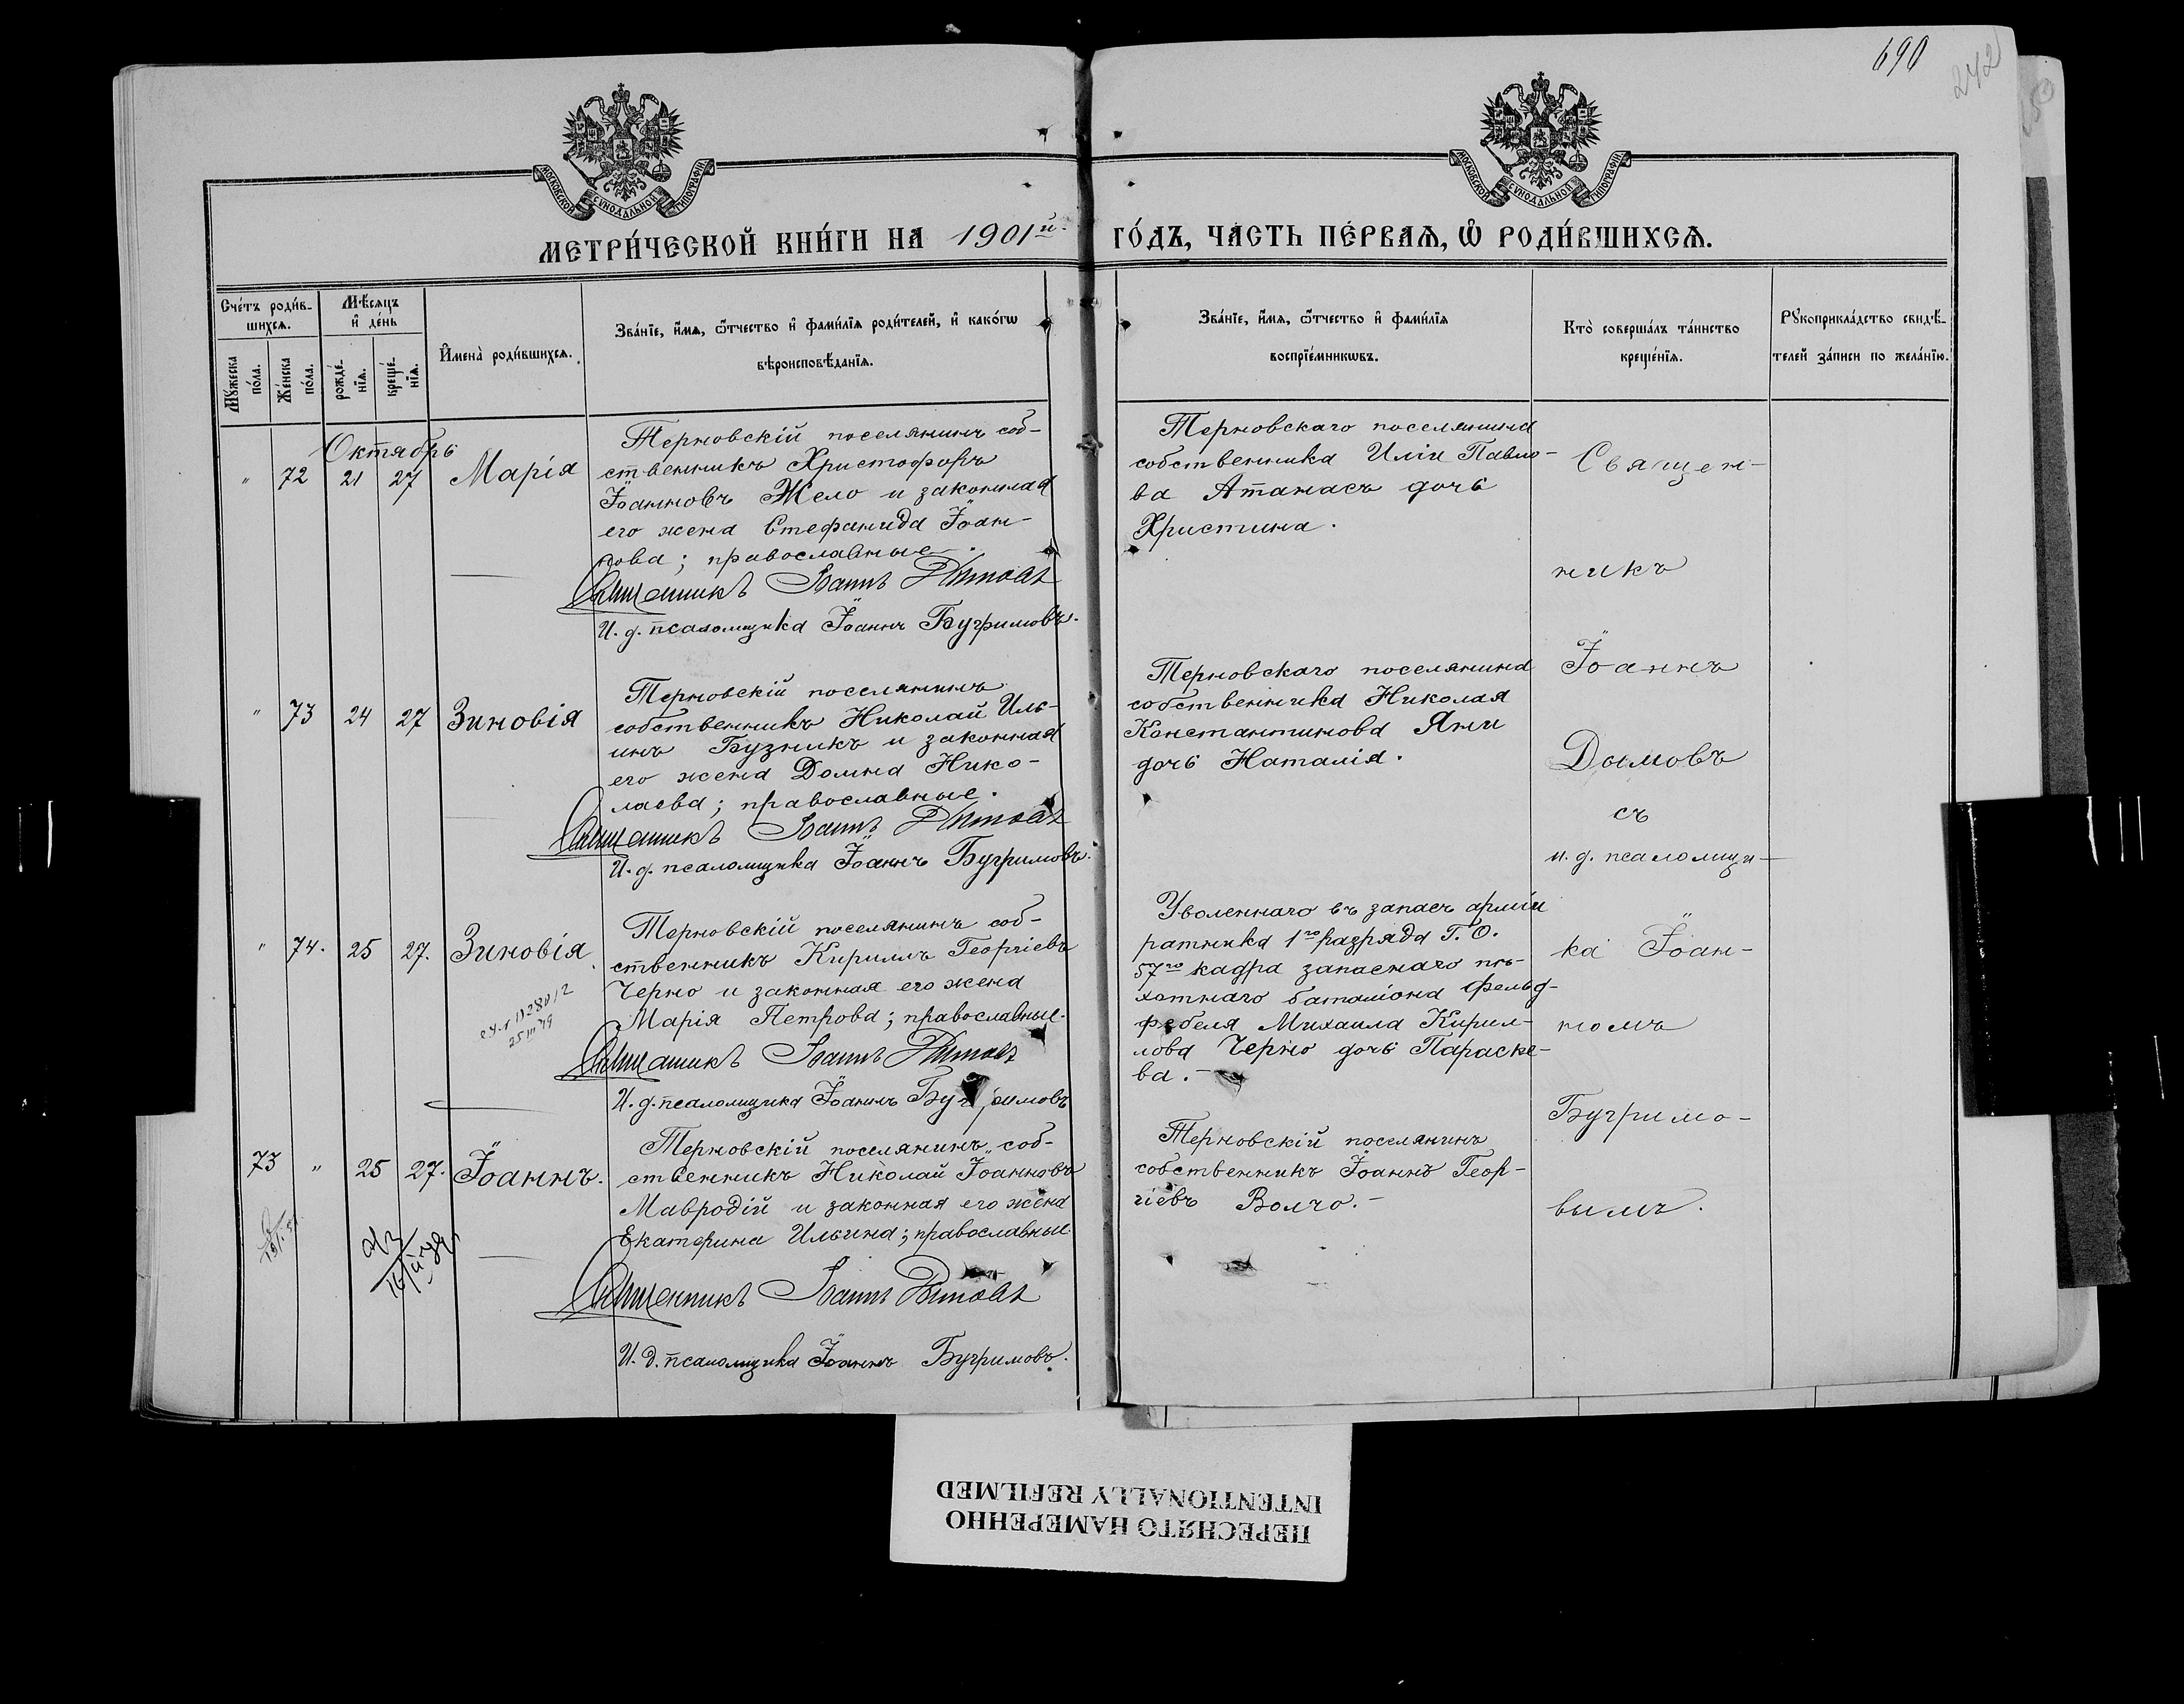 690
242
МОСКОВСКОЙ СУНОДАЛЬНОЙ ТИПОГРАФІИ
МОСКОВСКОЙ СУНОДАЛЬНОЙ ТИПОГРАФІИ
МЕТРИ́ЧЕСКОЙ КНИ́ГИ НА 1901й ГО́ДЪ, ЧА́СТЬ ПЕ́РВАѦ, Ѡ РОДИ́ВШИХСѦ.
Сче́тъ роди́в-
шихсѧ.
Мꙋ́жеска по́ла.
Же́нска по́ла.
Мѣ́сяцъ
и де́нь
рожде́-
нїѧ.
креще́-
нїѧ.
Имена̀ роди́вшихсѧ.
Зва́нїе, и́мѧ, ѻ҆́тчество и фами́лїѧ роди́телей, и како́гѡ
вѣроисповѣ́данїѧ.
Зва́нїе, и́мѧ, ѻ҆́тчество и фами́лїѧ
воспрїе́мникѡвъ.
Кто̀ соверша́лъ та́инство
креще́нїѧ.
Рꙋкоприкла́дство свидѣ́-
телей за́писи по жела́нїю.
Октябрь
" 72 21 27 Марія
Терновскій поселянинъ соб-
ственникъ Христофоръ
Іоанновъ Жело и законная
его жена Стефанида Іоан-
нова; православные.
Священникъ Іоаннъ Дымовъ
И. д. псаломщика Іоаннъ Бугримовъ.
Терновскаго поселянина
собственника Иліи Павло-
ва Атанасъ дочь
Христина.
" 73 24 27 Зиновія
Терновскій поселянинъ
собственникъ Николай Иль-
инъ Бузникъ и законная
его жена Домна Нико-
лаева; православные.
Священникъ Іоаннъ Дымовъ
И. д. псаломщика Іоаннъ Бугримовъ.
Терновскаго поселянина
собственника Николая
Константинова Яни
дочь Наталія.
" 74. 25 27. Зиновія
Терновскій поселянинъ соб-
ственникъ Кириллъ Георгіевъ
Черно и законная его жена
Марія Петрова; православные.
Священникъ Іоаннъ Дымовъ
И. д. псаломщика Іоаннъ Бугримовъ
Уволеннаго въ запасъ арміи
ратника 1го разряда Г. О.
57го кадра запаснаго пѣ-
хотнаго баталіона фельд-
фебеля Михаила Кирил-
лова Черно дочь Параске-
ва.
73 " 25 27. Іоаннъ.
Терновскій поселянинъ соб-
ственникъ Николай Іоанновъ
Мавродій и законная его жена
Екатерина Ильина; православные.
Священникъ Іоаннъ Дымовъ
И. д. псаломщика Іоаннъ Бугримовъ.
Терновскій поселянинъ
собственникъ Іоаннъ Геор-
гіевъ Волчо.
Священ-
никъ
Іоаннъ
Дымовъ
съ
и. д. псаломщи-
ка Іоан-
номъ
Бугримо-
вымъ.
ПЕРЕСНЯТО НАМЕРЕННО
INTENTIONALLY REFILMED